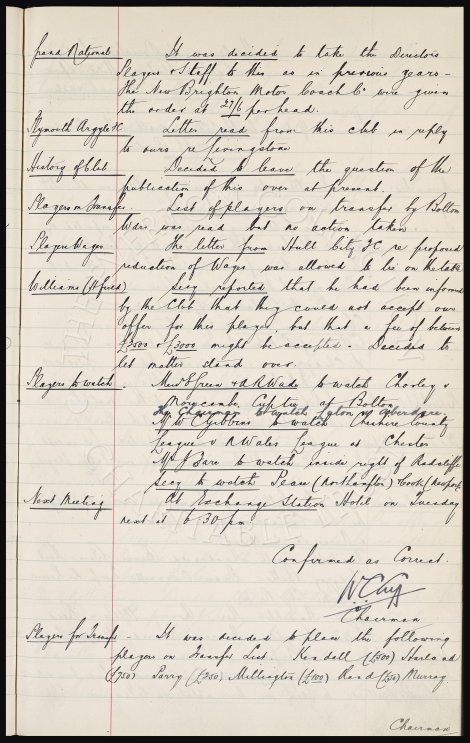 Grand National It was decided to take the Directors
Players & Staff to this as in previous years -
The New Brighton Motor Coach Co were given
the order at 27/6 per head.
Plymouth Argyle FC Letter read from this club in reply
to ours re Livingstone
History of Club Decided to leave the question of the
publication of this over at present.
Players on Transfer. List of players on transfer by Bolton
Wdrs was read but no action taken.
Players Wages The letter from Hull City FC re proposed
reduction of Wages was allowed to lie on the table
Williams (H'field) Secy reported that he had been informed
by the Club that they could not accept our
offer for this player, but that a fee of between
£2500 & £3000 might be accepted. Decided to
let matter stand over.
Players to watch. Messrs E Green & A R Wade to watch Chorley v
Morecambe Cup tie at Bolton
The Chairman to watch v Aberdare.
Mr W C Gibbins to watch Cheshire County
League v N Wales League at Chester
Mr J Bare to watch inside right of Radcliffe
Secy to watch Pease (Northampton) Cook (Newport
Next Meeting At Exchange Station Hotel on Tuesday
next at 6.30 pm
Confirmed as Correct.
W C Cuff
Chairman
Players for Transfer - It was decided to place the following
players on Transfer List. Kendall (£500) Harland
(£750) Parry (£250) Millington (£100) Rand (£50) Murray.
Chairman